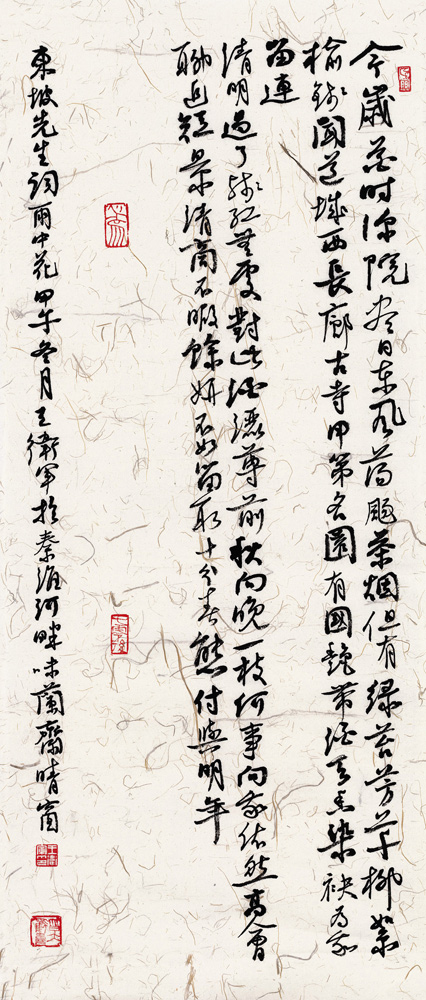 今歲花時深院盡日東風蕩颺茶烟但有綠苔芳草柳絮
榆錢聞道城西長廊古寺甲第名園有國艷帶酒天香染袂為我
留連
清明過了殘紅無處對此淚灑尊前秋向晚一枝何事向我依然高會
聊追短景清商不暇餘妍不如留取十分春態付與明年
東坡先生詞雨中花甲午冬月王衛軍於秦淮河畔味蘭齋晴窗